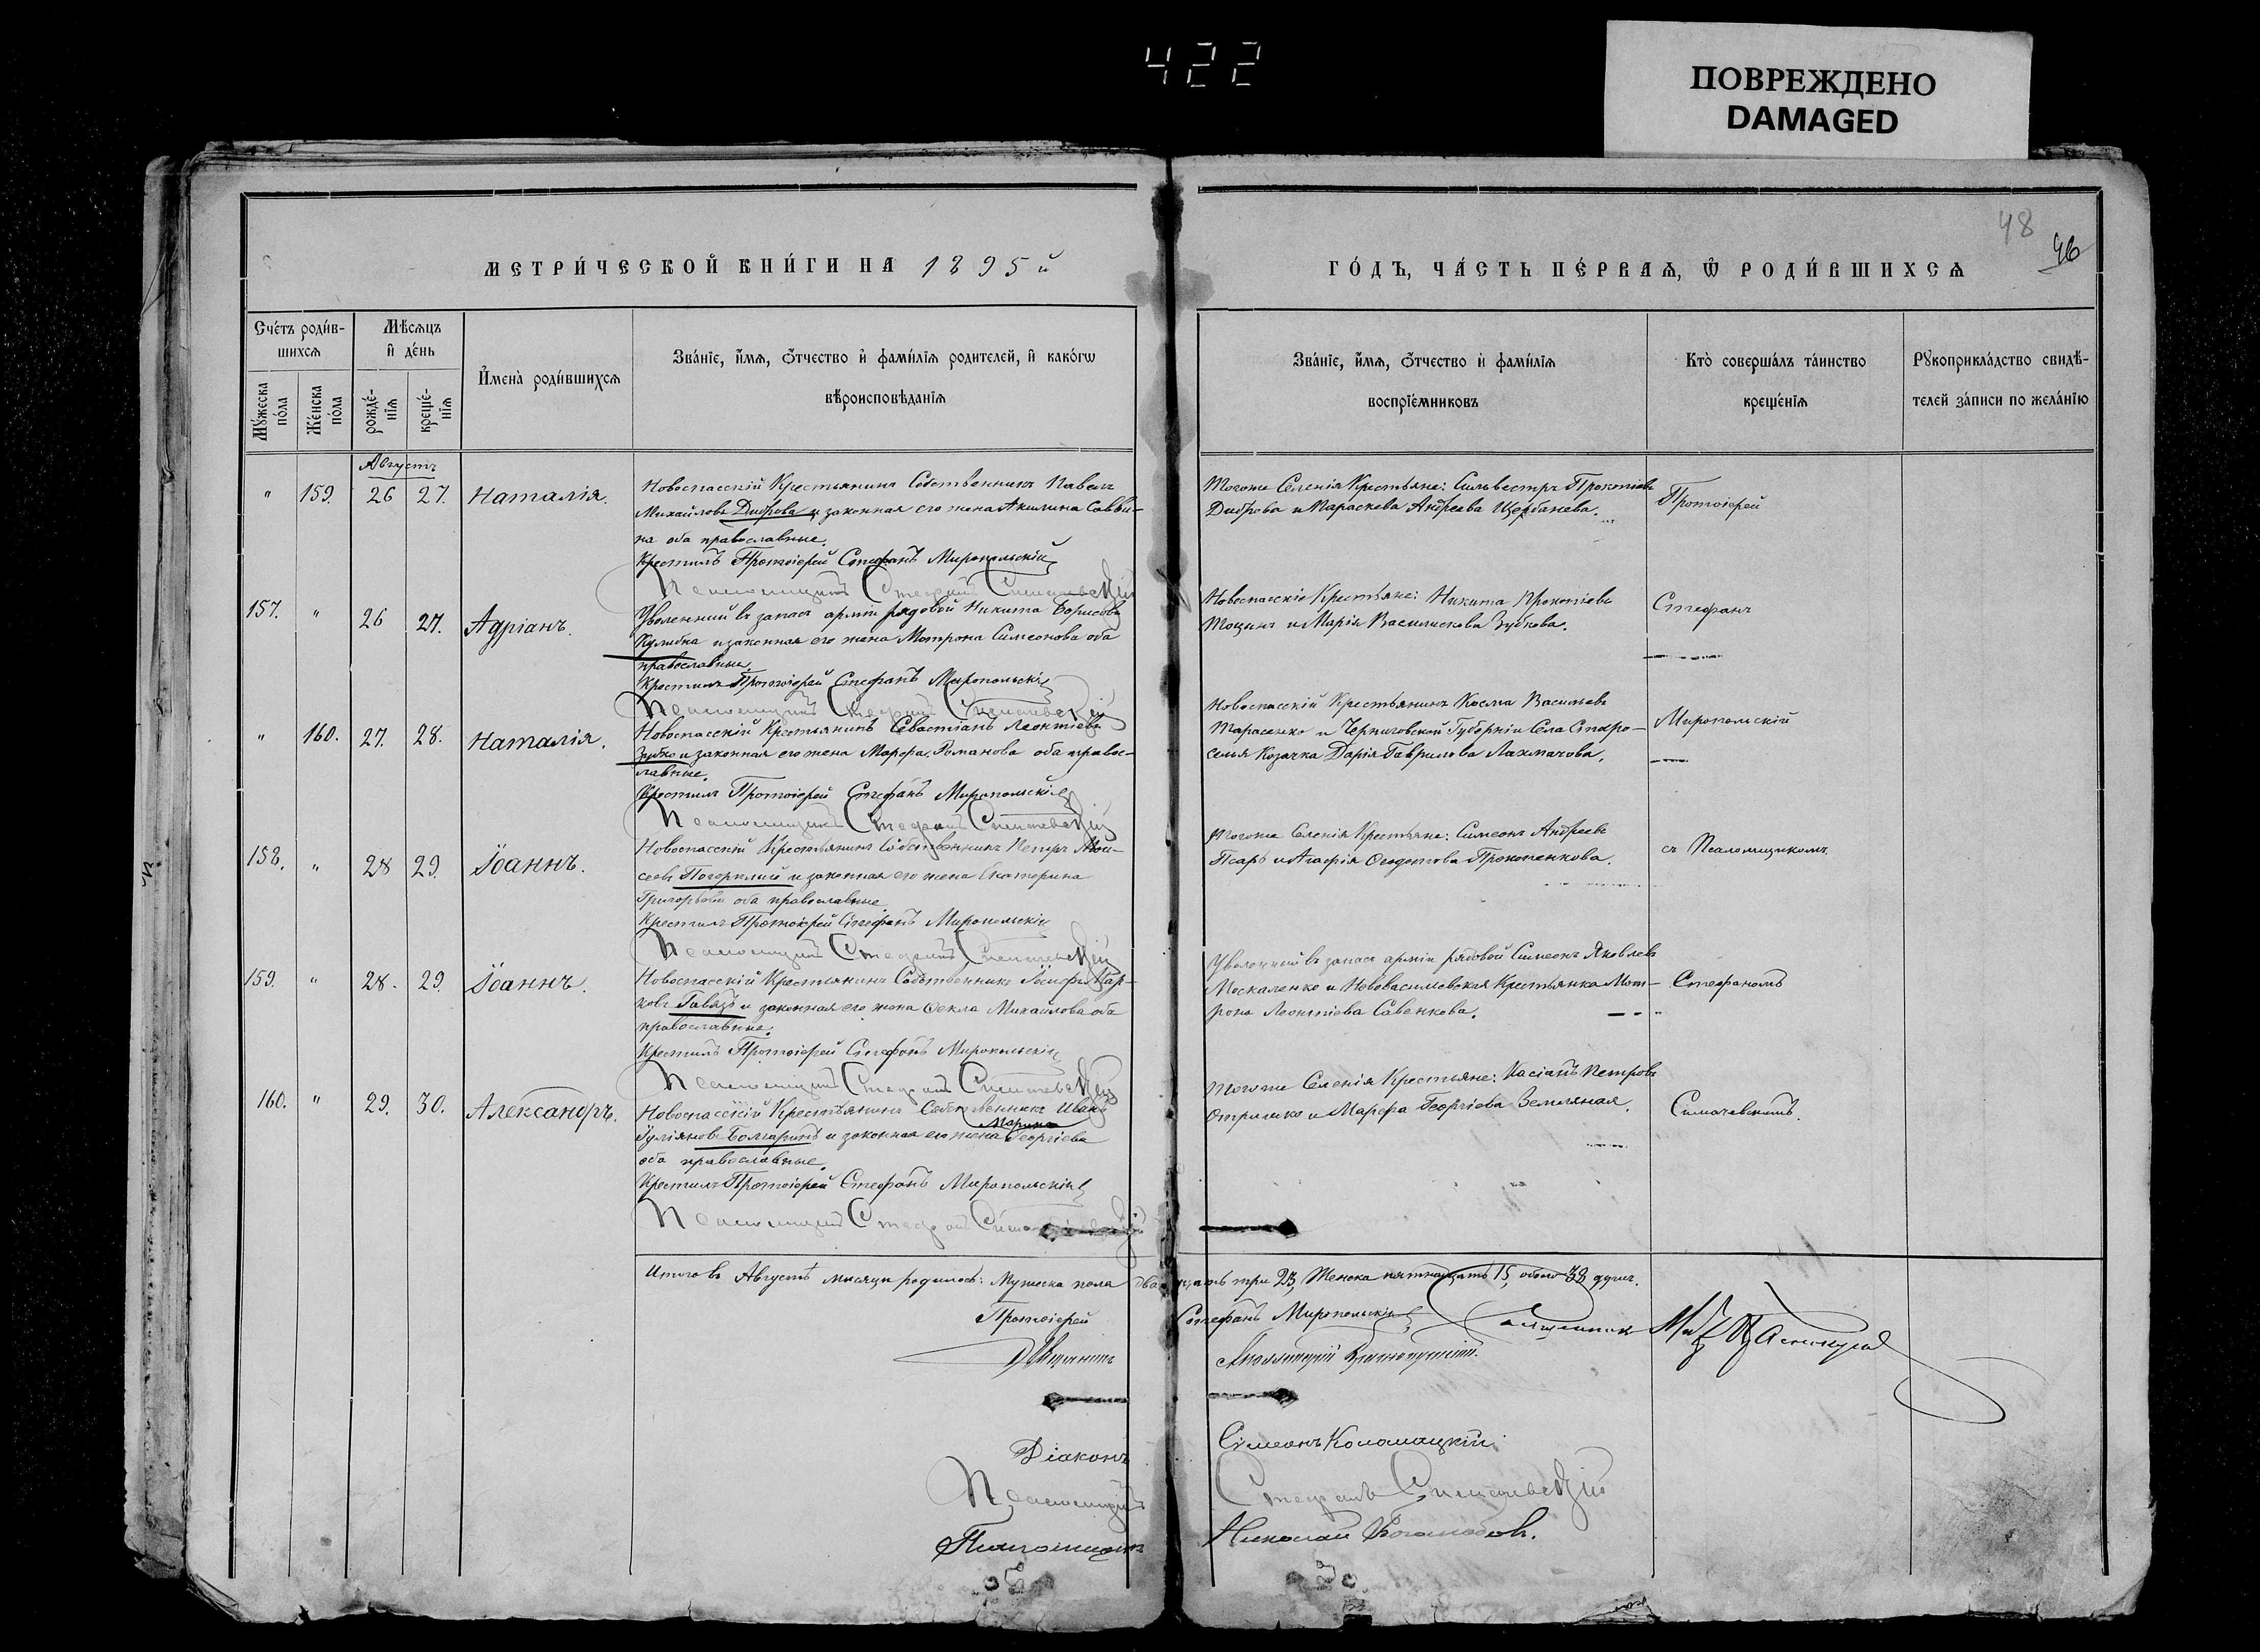 422
ПОВРЕЖДЕНО
DAMAGED
48
46
МЕТРИ́ЧЕСКОЙ КНИ́ГИ НА 1895 й
ГО́ДЪ, ЧА́СТЬ ПЕ́РВАѦ, Ѿ РОДИ́ВШИХСѦ
Сче́тъ роди́в-
шихсѧ
Мѣ́сѧцъ
и҆ де́нь
Мꙋ́жеска
по́ла
Же́нска
по́ла
рожде́-
нїѧ
креще́-
нїѧ
И҆мена̀ роди́вшихсѧ
Зва́нїе, и҆́мѧ, ѻ҆́тчество и҆ фами́лїѧ родителей, и҆ како́гѡ
вѣроисповѣ́данїѧ
Зва́нїе, и҆́мѧ, ѻ҆́тчество и҆ фами́лїѧ
воспрїе́мниковъ
Кто̀ соверша́лъ та́инство
креще́нїѧ
Рꙋкоприкла́дство свидѣ́-
телей за́писи по жела́нїю
Августъ
" 159. 26 27. Наталія.
Новоспасскій Крестьянинъ Собственникъ Павелъ
Михайловъ Диброва и законная его жена Акилина Савви-
на оба православные.
Крестилъ Протоіерей Стефанъ Миропольскій
Псаломщикъ Стефанъ Симачевскій
Тогоже Селенія Крестьяне: Сильвестръ Прокопіевъ
Диброва и Параскева Андреева Щербанева.
Протоіерей
157. " 26 27. Адріанъ.
Уволенный въ запасъ арміи рядовой Никита Борисовъ
Кулибка и законная его жена Мотрона Симеонова оба
православные.
Крестилъ Протоіерей Стефанъ Миропольскій
Псаломщикъ Стефанъ Симачевскій
Новоспасскіе Крестьяне: Никита Прокопіевъ
Тощинъ и Марія Василискова Зубкова.
Стефанъ
" 160. 27. 28. Наталія.
Новоспасскій Крестьянинъ Севастіанъ Леонтіевъ
Зубко и законная его жена Марфа Романова оба правос-
лавные.
Крестилъ Протоіерей Стефанъ Миропольскій
Псаломщикъ Стефанъ Симачевскій
Новоспасскій Крестьянинъ Косма Васильевъ
Тарасенко и Черниговской Губерніи Села Старо-
селья Козачка Дарія Гаврилова Лахмачова.
Миропольскій
158. " 28 29. Іоаннъ.
Новоспасскій Крестьянинъ Собственникъ Петръ Мои-
сеевъ Погорилый и законная его жена Екатерина
Григорьева оба православные.
Крестилъ Протоіерей Стефанъ Миропольскій
Псаломщикъ Стефанъ Симачевскій
Тогоже Селенія Крестьяне: Симеонъ Андреевъ
Псаръ и Агафія Федотова Прокопенкова.
съ Псаломщикомъ
159. " 28. 29. Іоаннъ.
Новоспасскій Крестьянинъ Собственникъ Іосифъ Мар-
ковъ Гавязъ и законная его жена Фекла Михайлова оба
православные.
Крестилъ Протоіерей Стефанъ Миропольскій
Псаломщикъ Стефанъ Симачевскій
Уволенный въ запасъ арміи рядовой Симеонъ Яковлевъ
Москаленко и Нововасилевская Крестьянка Мот-
рона Леонтіева Савенкова.
Стефаномъ
160. " 29. 30. Александръ.
Новоспасскій Крестьянинъ Собственникъ Иванъ
Марина
Іуліяновъ Болгаринъ и законная его жена Георгіева
оба православные.
Крестилъ Протоіерей Стефанъ Миропольскій
Псаломщикъ Стефанъ Симачевскій
Тогоже Селенія Крестьяне: Касіанъ Петровъ
Отришко и Марфа Георгіева Земляная.
Симачевскимъ.
Итого въ Августѣ мѣсяцѣ родилось: Мужеска пола двадцать три 23, Женска пятнадцать 15, обоего 38 душъ.
Протоіерей Стефанъ Миропольскій
Священникъ
Діаконъ Симеонъ Коломацкій
Псаломщикъ Стефанъ Симачевскій
Псаломщикъ Николай